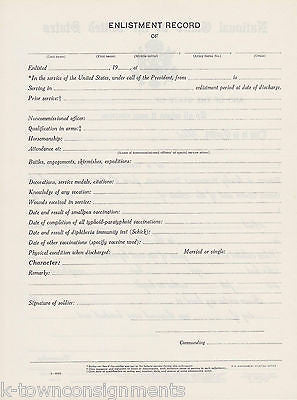 ENLISTMENT RECORD
OF
(Last name) (First name) (Middle initial) (Army Serial No.) (Grade)
Enlisted , 19 , at
*In the service of the United States, under call of the President, from to
Serving in enlistment period at date of discharge.
Prior service:†
Noncommissioned officer:
Qualification in arms:‡
Horsemanship:
Attendance at:
(Name of noncommissioned officers' or special service school)
Battles, engagements, skirmishes, expeditions:
Decorations, service medals, citations:
Knowledge of any vocation:
Wounds received in service:
Date and result of smallpox vaccination:
Date of completion of all typhoid-paratyphoid vaccinations:
Date and result of diphtheria immunity test (Schick):
Date of other vaccinations (specify vaccine used):
Physical condition when discharged: Married or single:
Character:
Remarks:
Signature of soldier:
Commanding
U.S. GOVERNMENT PRINTING OFFICE
k-townconsignments